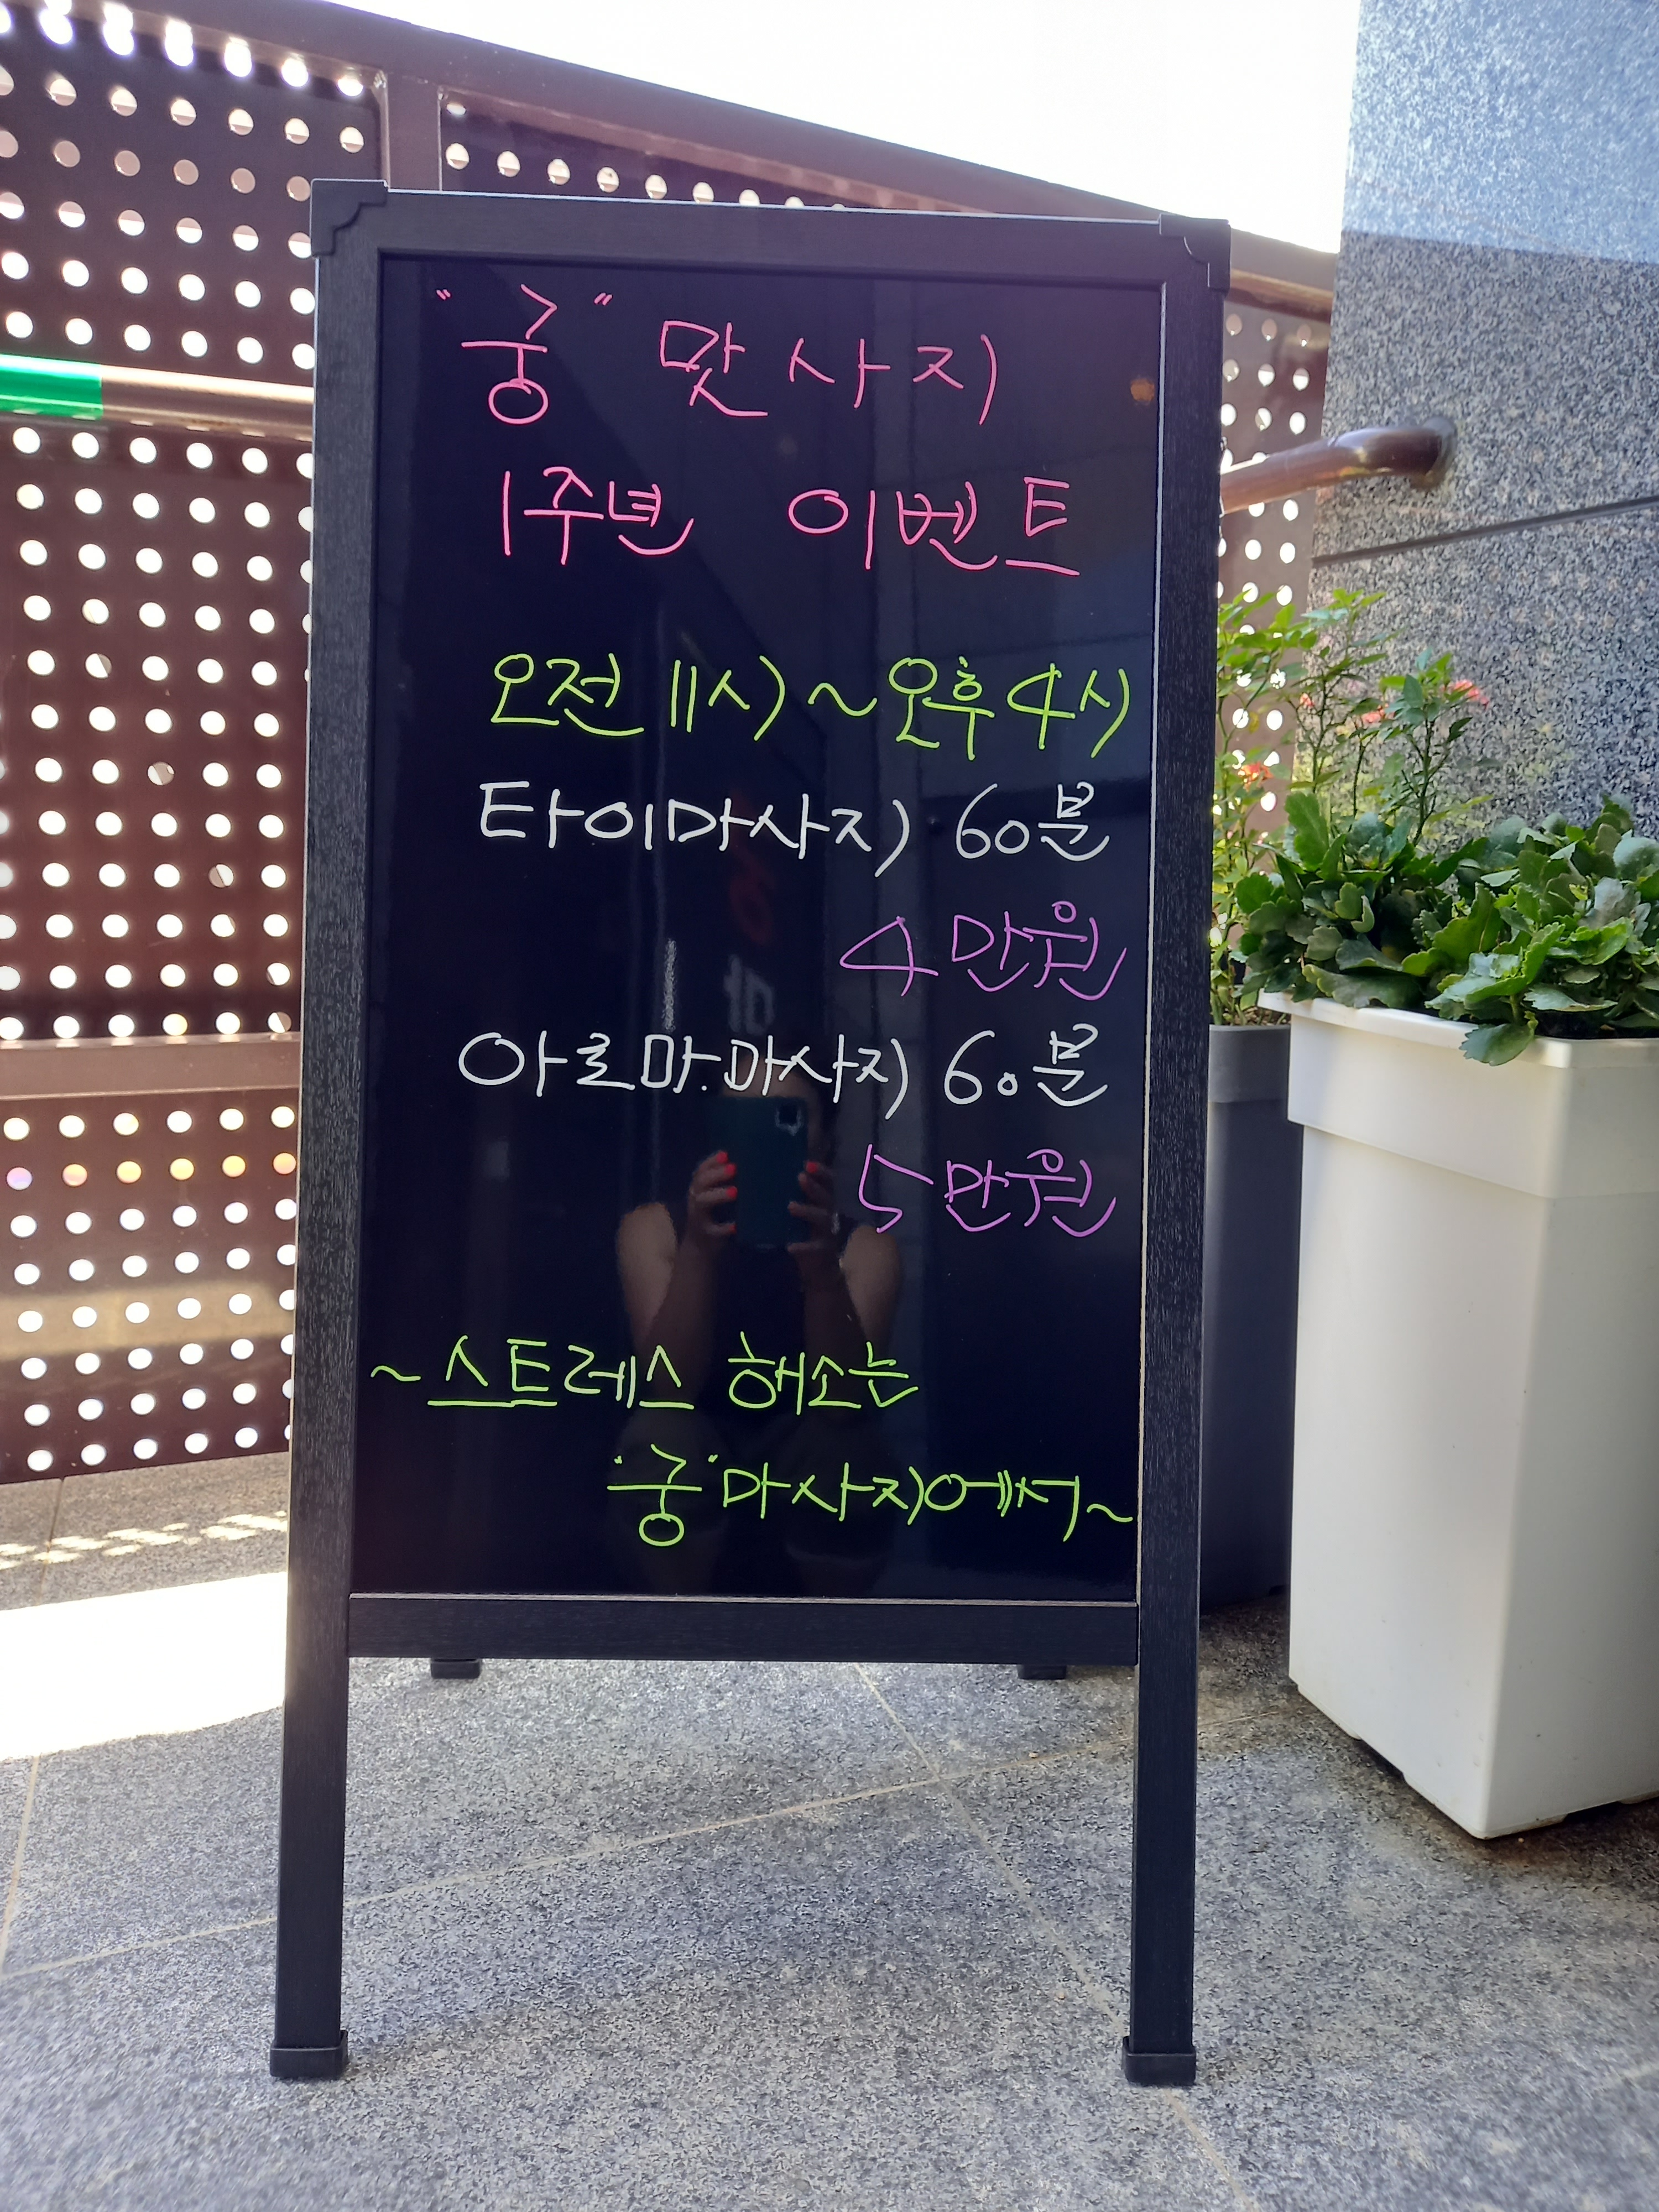 "궁" 맛사지
1주년 이벤트
오전 11시~오후4시
타이마사지 60분
4만원
아로마.마사지 60분
5만원
~스트레스 해소는
"궁"마사지에서~